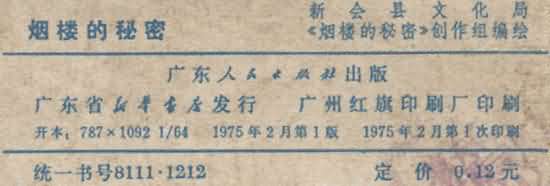 烟楼的秘密
新会县文化局
《烟楼的秘密》创作组编绘
广东人民出版社出版
广东省新华书店发行 广州红旗印刷厂印刷
开本：787×1092 1/64 1975年2月第1版 1975年2月第1次印刷
统一书号8111·1212 定价 0.12元